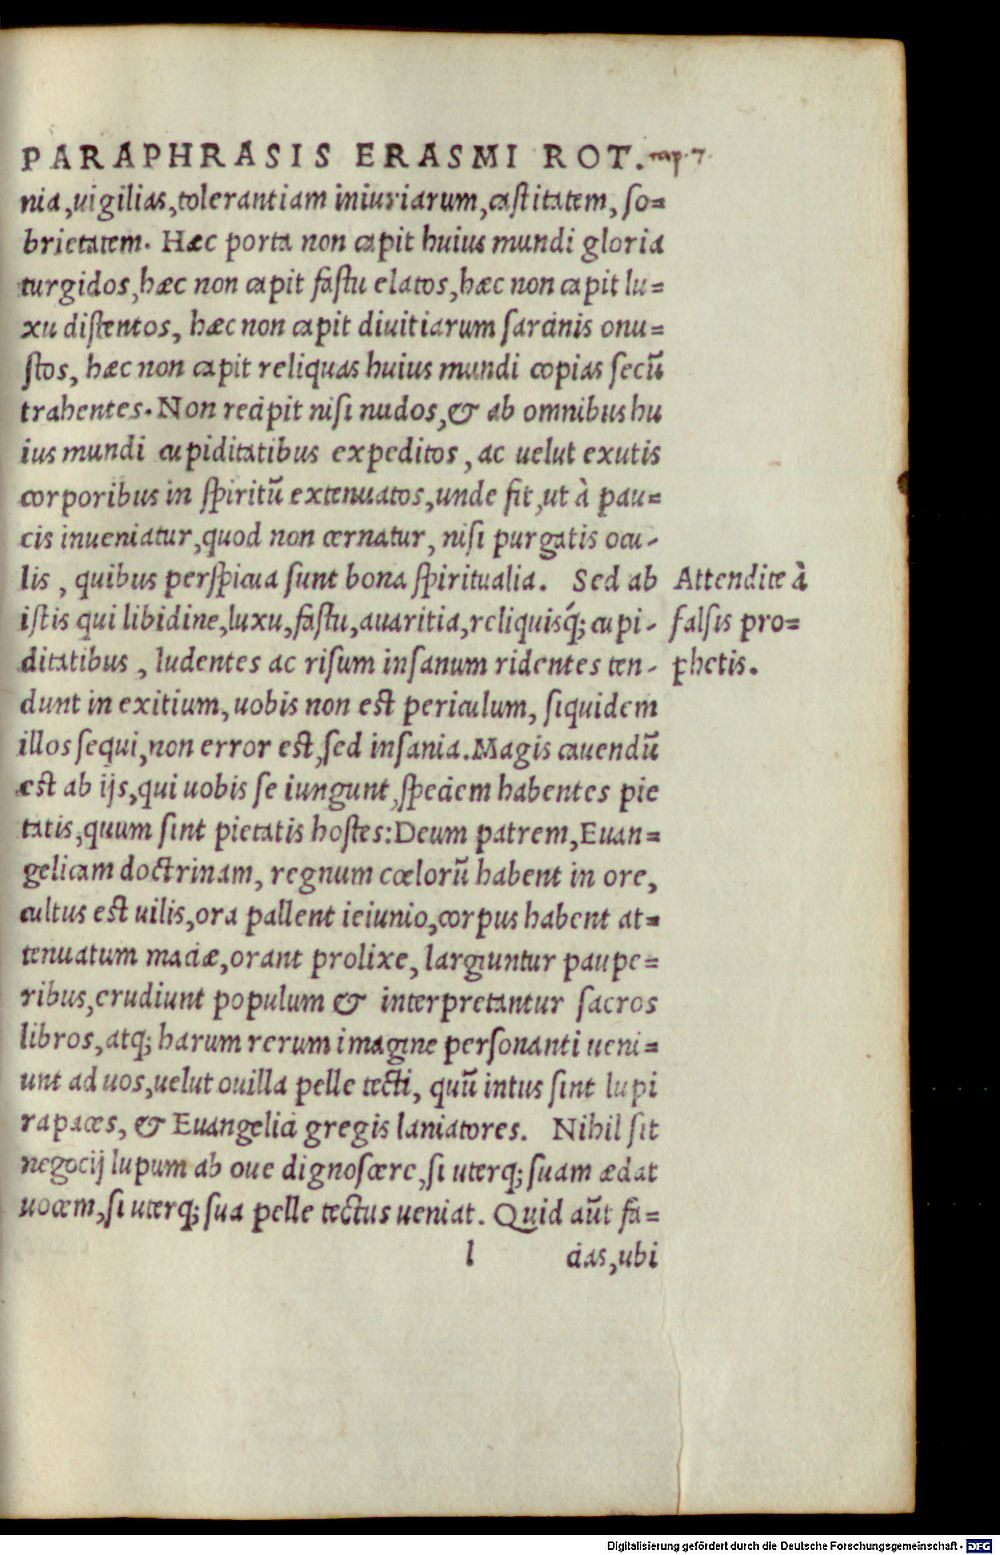 PARAPHRASIS ERASMI ROT. cap. 7.
nia, uigilias, tolerantiam iniuriarum, castitatem, so=
brietatem. Hæc porta non capit huius mundi gloria
turgidos, hæc non capit fastu elatos, hæc non capit lu=
xu distentos, hæc non capit diuitiarum sarcinis onu=
stos, hæc non capit reliquas huius mundi copias secū
trahentes. Non recipit nisi nudos, & ab omnibus hu
ius mundi cupiditatibus expeditos, ac uelut exutis
corporibus in spiritū extenuatos, unde fit, ut à pau=
cis inueniatur, quod non cernatur, nisi purgatis ocu-
lis, quibus perspicua sunt bona spiritualia. Sed ab
istis qui libidine, luxu, fastu, auaritia, reliquisq́; cupi-
ditatibus, ludentes ac risum insanum ridentes ten-
dunt in exitium, uobis non est periculum, siquidem
illos sequi, non error est, sed insania. Magis cauendū
est ab ijs, qui uobis se iungunt, speciem habentes pie
tatis, quum sint pietatis hostes: Deum patrem, Euan=
gelicam doctrinam, regnum cœlorū habent in ore,
cultus est uilis, ora pallent ieiunio, corpus habent at=
tenuatum maciæ, orant prolixe, largiuntur paupe=
ribus, erudiunt populum & interpretantur sacros
libros, atq; harum rerum imagine personanti ueni=
unt ad uos, uelut ouilla pelle tecti, quū intus sint lupi
rapaces, & Euangelici gregis laniatores. Nihil sit
negocij lupum ab oue dignoscere, si uterq; suam ædat
uocem, si uterq; sua pelle tectus ueniat. Quid aūt fa=
l cias, ubi
Attendite à
falsis pro=
phetis.
Digitalisierung gefördert durch die Deutsche Forschungsgemeinschaft - DFG